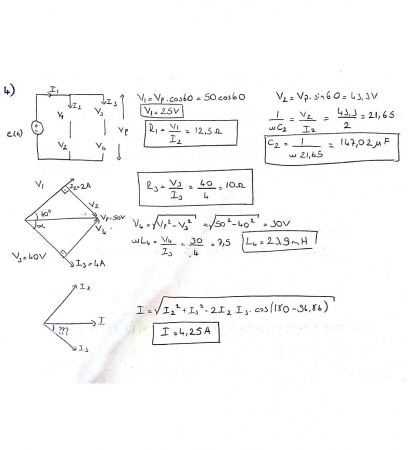 4)
I₁ I₂ I₃
V₁ V₃ Vp
e(t)
V₂ V₄
V₁ = Vp.cos60 = 50cos60
V₁ = 25V
R₁ = V₁/I₂ = 12,5Ω
V₂ = Vp.sin60 = 43,3V
1/wC₂ = V₂/I₂ = 43,3/2 = 21,65
C₂ = 1/w21,65 = 147,02μF
V₁ I₂=2A
V₂
60° Vp=50V
α V₄
V₃=40V I₃=4A
R₃ = V₃/I₃ = 40/4 = 10Ω
V₄ = √Vp²-V₃² = √50²-40² = 30V
wL₄ = V₄/I₃ = 30/4 = 7,5
L₄ = 23,9mH
I₂
??? I
I₃
I = √I₂²+I₃²-2I₂.I₃.cos(180-96,86)
I = 4,25A